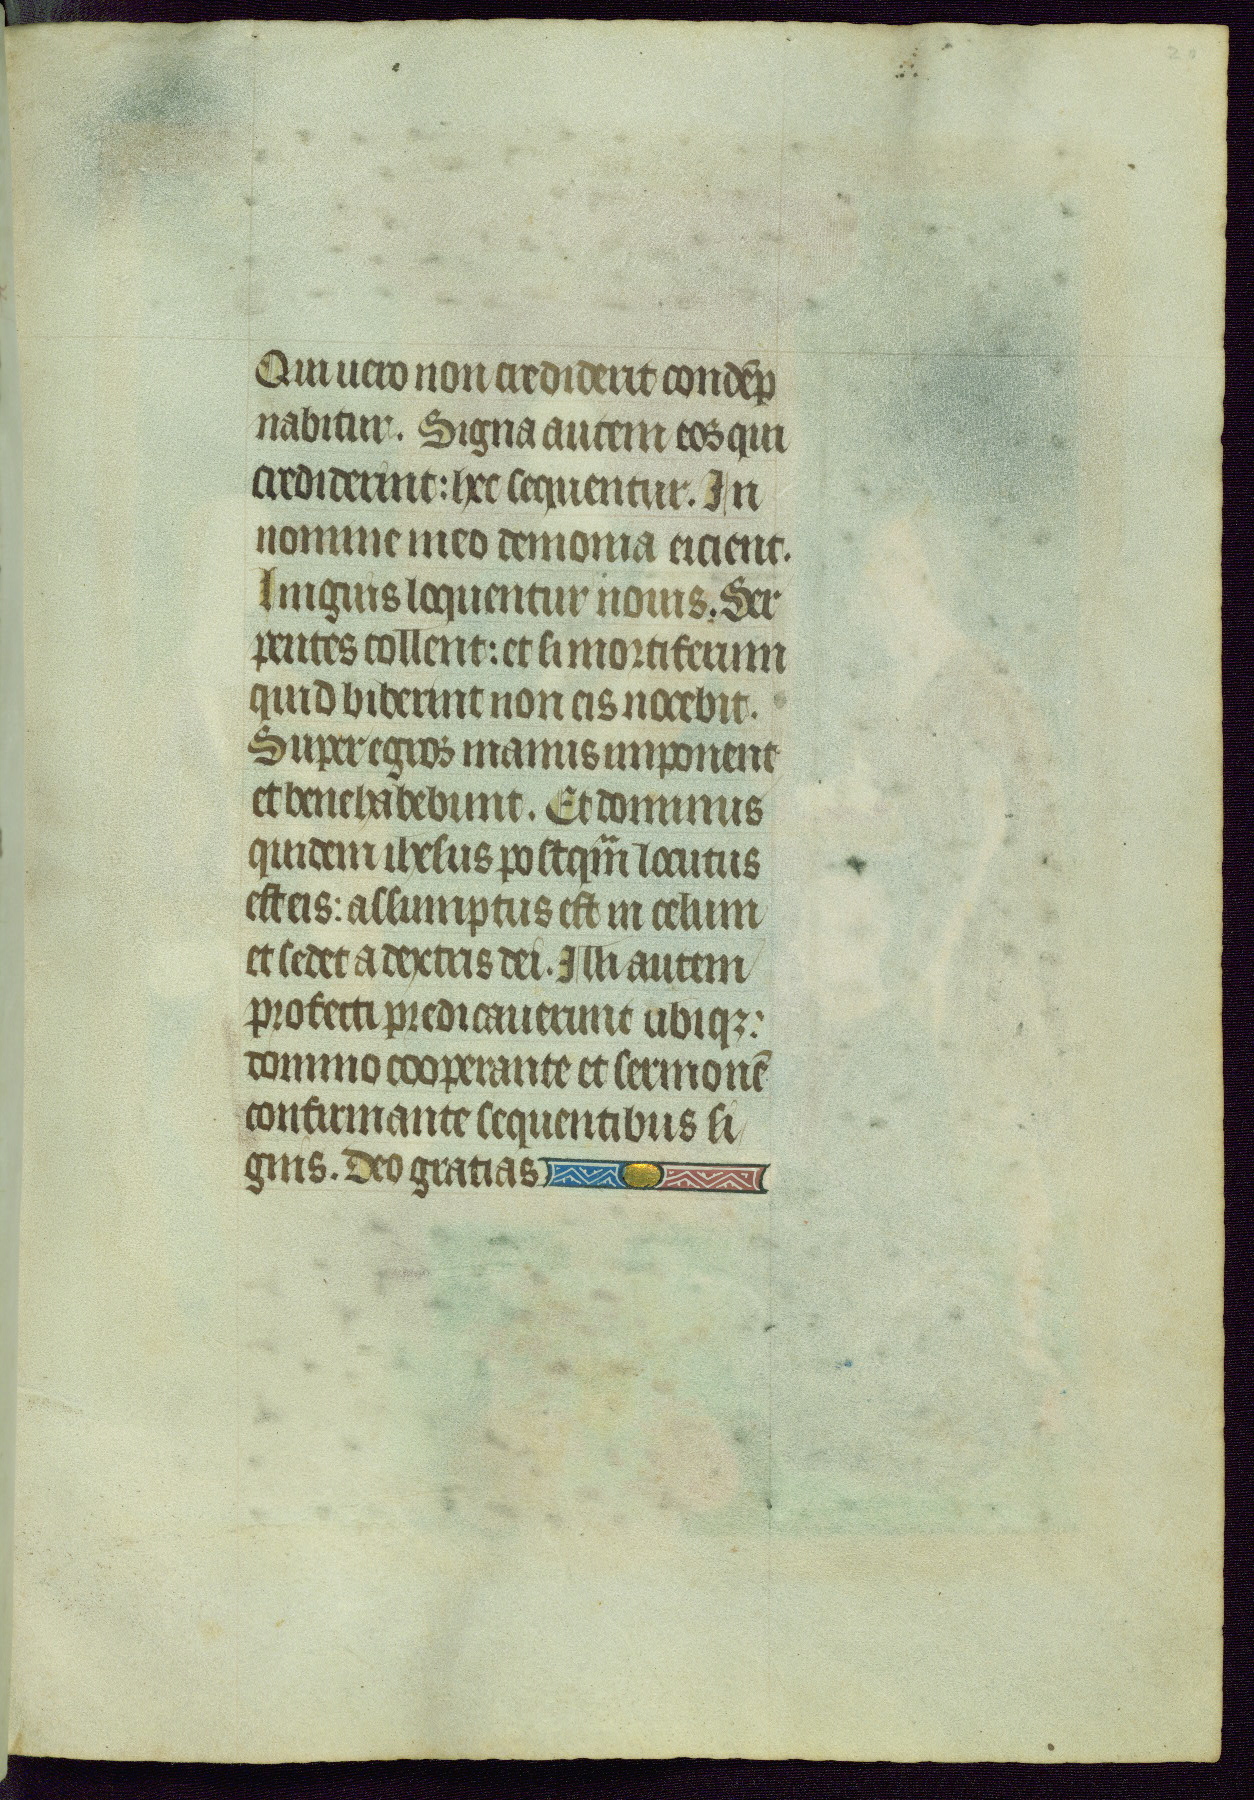 Qui uero non crediderit condēp
nabitur. Signa autem eoꝝ qui
crediderint: hec sequentur. In
nomine meo demonia eicient.
Linguis loquentur nouis. Ser
pentes tollent: et si mortiferum
quid biberint non eis nocebit.
Super egroꝝ manus imponent
et bene habebunt. Et dominus
quidem ihesus postqm̄ locutus
est eis: assumptus est in celum
et sedet a dextris dei. Illi autem
profecti predicauerunt ubiqꝫ:
domino cooperante et sermonē
confirmante sequentibus si
gnis. Deo gratias